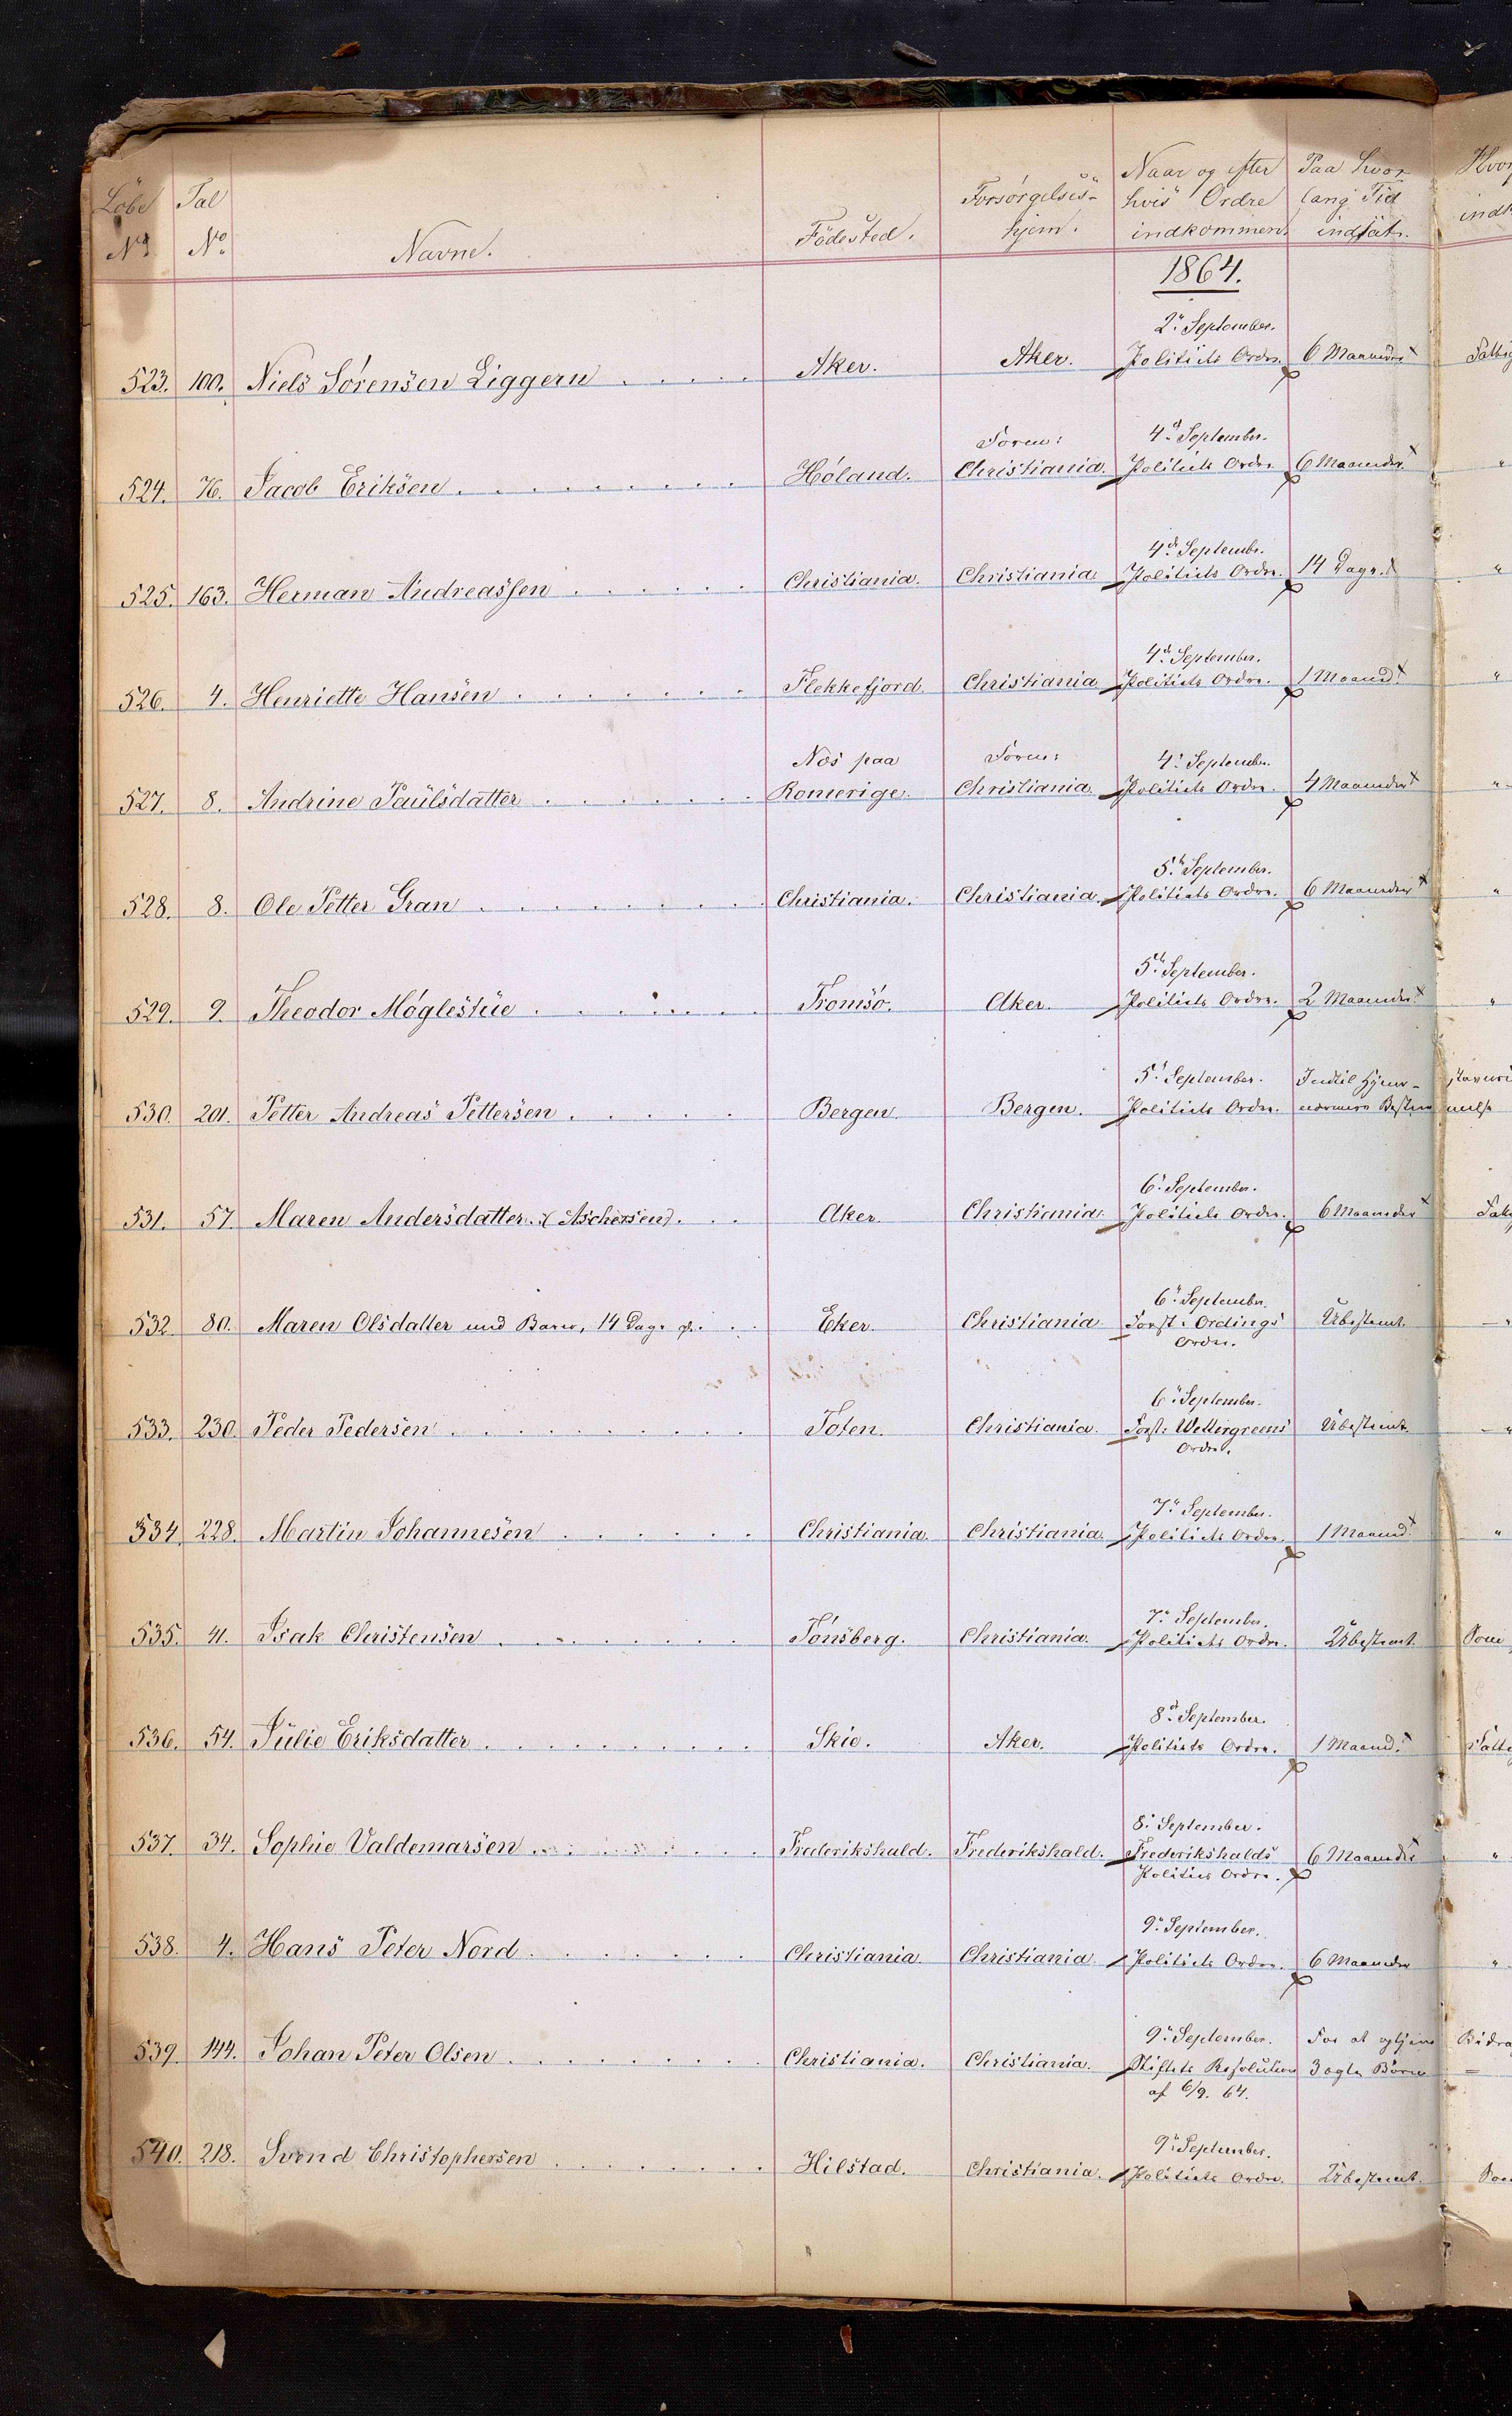 Löbe Tal Naar og efter Paa hvor
Forsörgelses- hvis Ordre lang Tid
No No Navne. Födested. hjem. indkommen. indsat.
1864.
2. September.
523. 100. Niels Sörensen Liggern Aker. Aker. Politiets Ordre. 6 Maaneder
Foren: 4d September.
524. 76. Jacob Eriksen Höland. Christiania. Politiets Ordre. 6 Maaneder
4de Septembr.
525. 163. Herman Andreassen Christiania. Christiania. Politiets Ordre. 14 Dage.
4de September.
526. 4. Henriette Hansen Flekkefjord. Christiania. Politiets Ordre. 1 Maaned.
Næs paa Foren: 4. September.
527. 8. Andrine Paulsdatter Romerige. Christiania. Politiets Ordre. 4 Maaneder
5. September.
528. 8. Ole Petter Gran Christiania. Christiania. Politiets Ordre. 6 Maaneder
5. September.
529. 9. Theodor Möglestue Tromsö. Aker. Politiets Ordre. 2 Maaneder.
5. September. Indtil Hjem-
530. 201. Petter Andreas Pettersen Bergen. Bergen. Politiets Ordre. nærmere Bestem melse
6. September.
531. 57. Maren Andersdatter. (Aschersen). Aker. Christiania. Politiets Ordre. 6 Maaneder
6. September.
532. 80. Maren Olsdatter med Barn, 14 Dage gl. Eker. Christiania Forst: Ordings Ubestemt.
Ordre.
6. September.
533. 230. Peder Pedersen Toten. Christiania. Forst: Wettergreens Ubestemt.
Ordre.
7. September.
534. 228. Martin Johannesen Christiania. Christiania. Politiets Ordre. 1 Maaned.
7. September.
535. 41. Isak Christensen Tönsberg. Christiania. Politiets Ordre. Ubestemt. Som
8. September.
536. 54. Julie Eriksdatter Skie. Aker. Politiets Ordre. 1 Maaned.
8. September.
537. 34. Sophie Valdemarsen Frederikshald. Frederikshald. Frederikshalds 6 Maaneder
Polities Ordre.
9. September.
538. 4. Hans Peter Nord Christiania. Christiania. Politiets Ordre. 6 Maaneder
9. September. For at optjene Bidrag
539. 144. Johan Peter Olsen Christiania. Christiania. Stiftets Resolution 3 ægte Börn
af 6/9. 64.
9. September.
540. 218. Svend Christophersen Hilstad. Christiania. Politiets Ordre. Ubestemt.